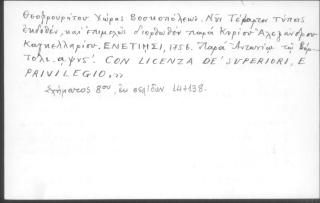 Θεοφρουρήτου Χώρας Βοσκοπόλεως. Νῦν Τέταρτον τύποις
ἐκδοθὲν, καὶ ἐπιμελῶς διορθωθὲν παρὰ Κυρίου Ἀλεξάνδρου
Καγκελλαρίου. ΕΝΕΤΙΗΣΙ, 1756. Παρὰ Ἀντωνίῳ τῷ
CON LICENZA DE' SUPERIORI, E
PRIVILEGIO,»
Σχήματος 8ου, ἐκ σελίδων 14+138.